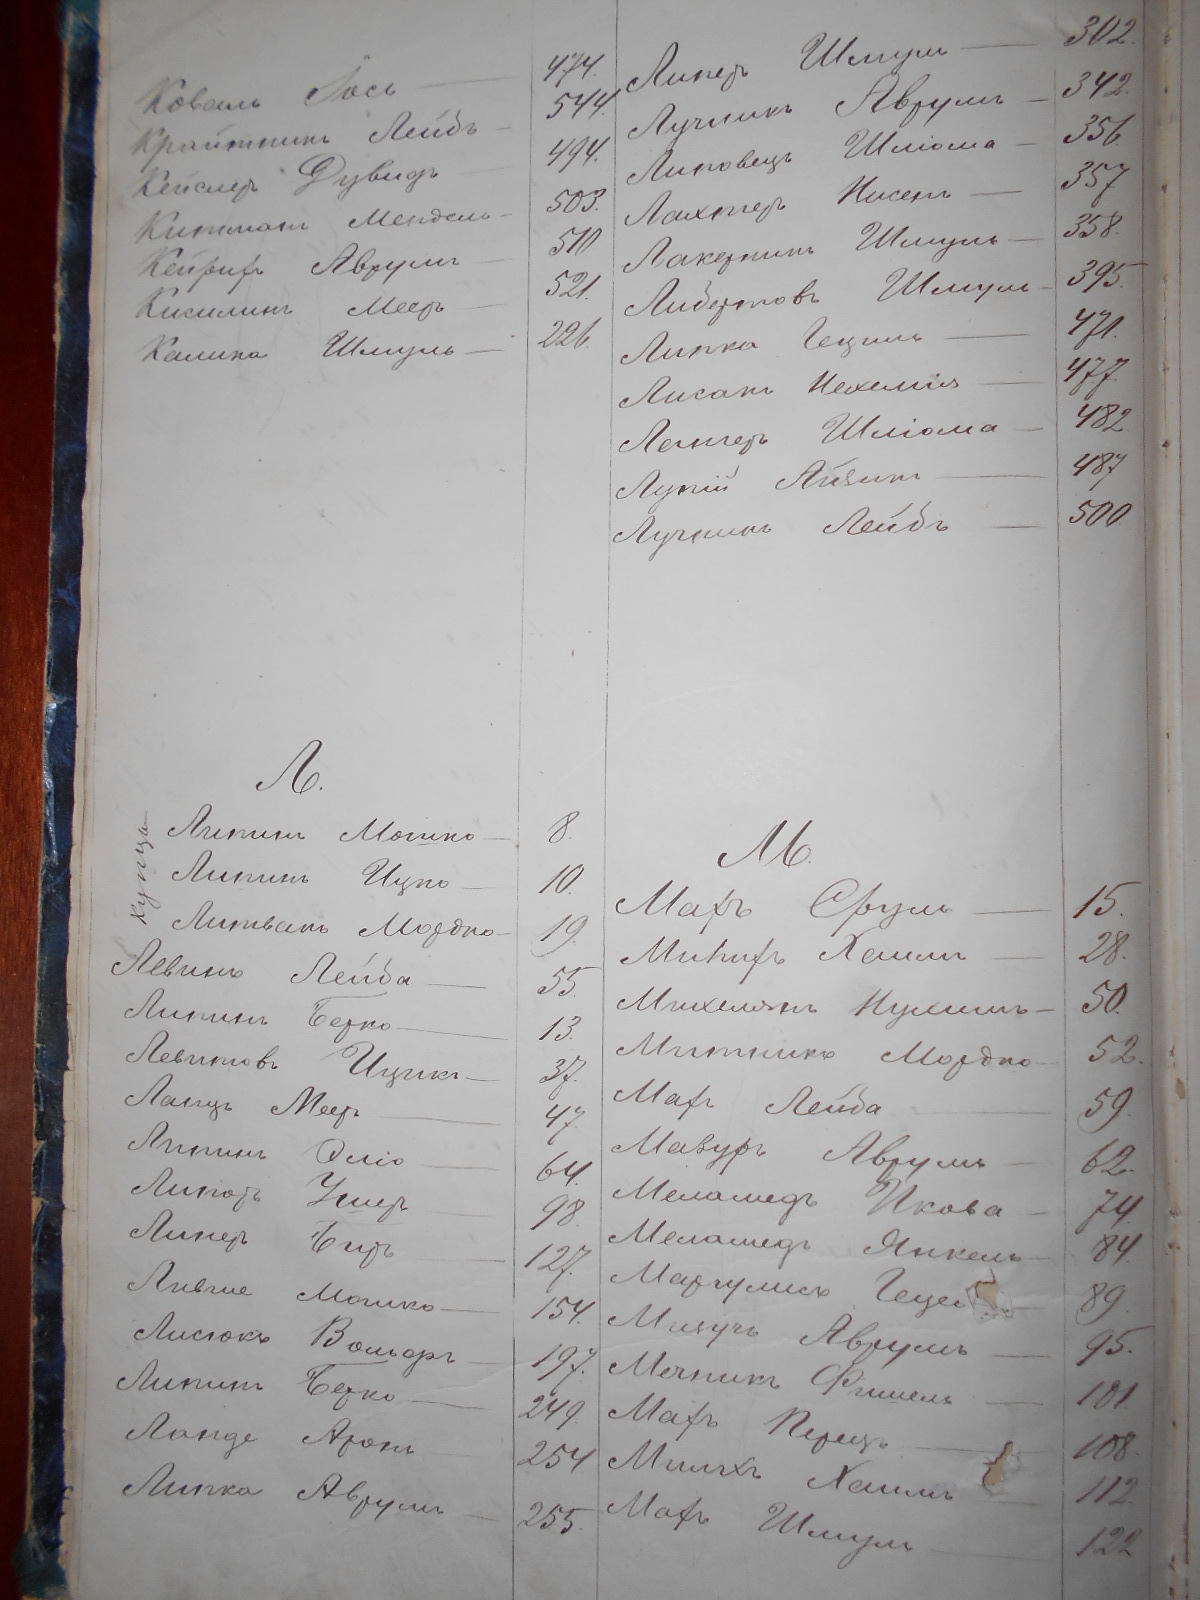 Коваль Іось — 474.
Крайтникъ Лейбъ — 544.
Кейслеръ Дувидъ — 494.
Китманъ Мендель — 503.
Кейфифъ Аврумъ — 510
Кисилинъ Мееръ — 521.
Калика Шмуль — 226.
Л.
Купцы
Липинъ Мошко — 8.
Липинъ Ицко — 10.
Литвакъ Мордко — 19.
Левинъ Лейба — 55.
Липинъ Берко — 13.
Левитовъ Ицикъ — 37.
Ланцъ Мееръ — 47.
Липинъ Эліо — 64.
Умеръ — 98.
Линеръ Беръ — 127.
Мошко — 154.
Лисюкъ Вольфъ — 197.
Липинъ Берко — 249.
Ланде Аронъ — 254
Липка Аврумъ — 255.
Линеръ Шмуль — 302.
Лучникъ Аврумъ — 342.
Липовецъ Шліома — 356.
Лахтеръ Нисенъ — 357
Лакерникъ Шмуль — 358.
Либертовъ Шмуль — 395.
Липка Гецель — 471.
Лисакъ Нехемія — 477.
Лангеръ Шліома — 482
Лупій Айзикъ — 487
Лучникъ Лейбъ — 500.
М.
Мафъ Сруль — 15.
Хаимъ — 28.
Михелзонъ Нухимъ — 50.
Митникъ Мордко — 52.
Мафъ Лейба — 59.
Мазуръ Аврумъ — 62.
Меламедъ Икова — 74.
Меламедъ Янкель — 84.
Маргулисъ Геце — 89.
Аврумъ — 95.
Мечникъ Фишель — 101
Мафъ Перецъ — 108.
Хаимъ 112.
Мафъ Шмуль — 122